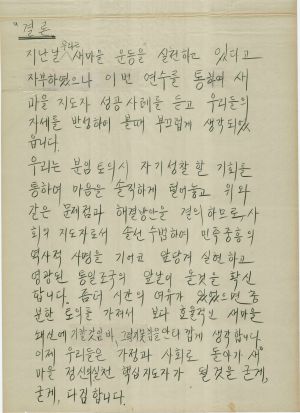 "결론.
지난날 우리는 새마을 운동을 실천하고 있다고
자부하였으나 이번 연수를 통하여 새
마을 지도자 성공사례를 듣고 우리들의
자세를 반성하여 볼때 부끄럽게 생각되었
읍니다.
우리는 분임토의시 자기성찰 할 기회를
통하여 마음을 솔직하게 털어놓고 위와
같은 문제점과 해결방안을 결의하므로 사
회의 지도자로서 솔선수범하여 민족중흥의
역사적 사명을 기어코 앞당겨 실현하고
영광된 통일조국의 앞날이 올것을 확신
합니다. 좀더 시간의 여유가 있었으면 충
분한 토의를 가져서 보다 효율적인 새마을
쇄신에 기할것인바, 그렇지못함을 안타깝게 생각합니다.
이제 우리들은 가정과 사회로 돌아가 새
마을 정신의 실천 핵심지도자가 될것을 굳게,
굳게, 다짐합니다.